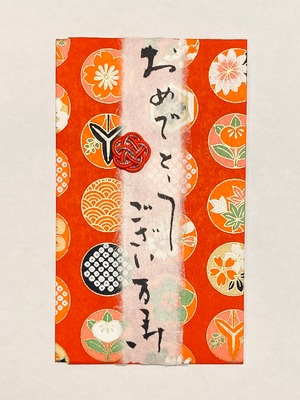 おめでとう
ございます